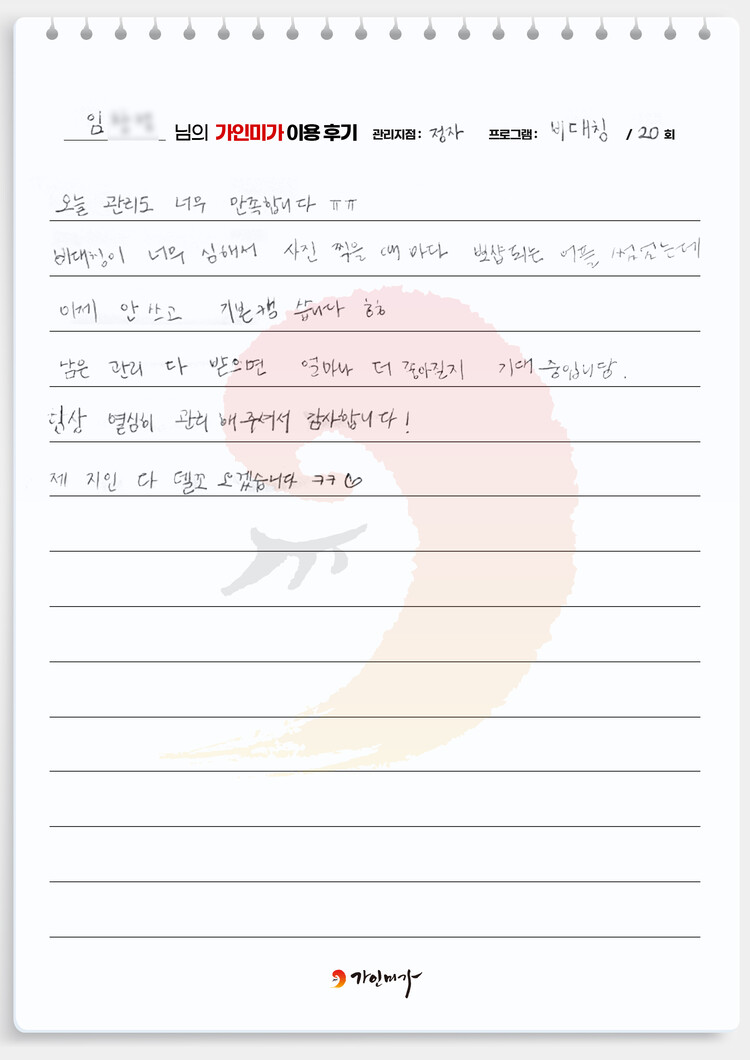 임 님의 가인미가 이용 후기 관리지점 : 정자 프로그램 : 비대칭 / 20 회
오늘 관리도 너무 만족합니다 ㅠㅠ
비대칭이 너무 심해서 사진 찍을 때 마다 뽀샵되는 어플 썼었는데
이제 안 쓰고 기본캠 씁니다 ㅎㅎ
남은 관리 다 받으면 얼마나 더 좋아질지 기대 중입니당.
항상 열심히 관리 해주셔서 감사합니다!
제 지인 다 델꼬 오겠습니다 ㅋㅋ♡
가인미가